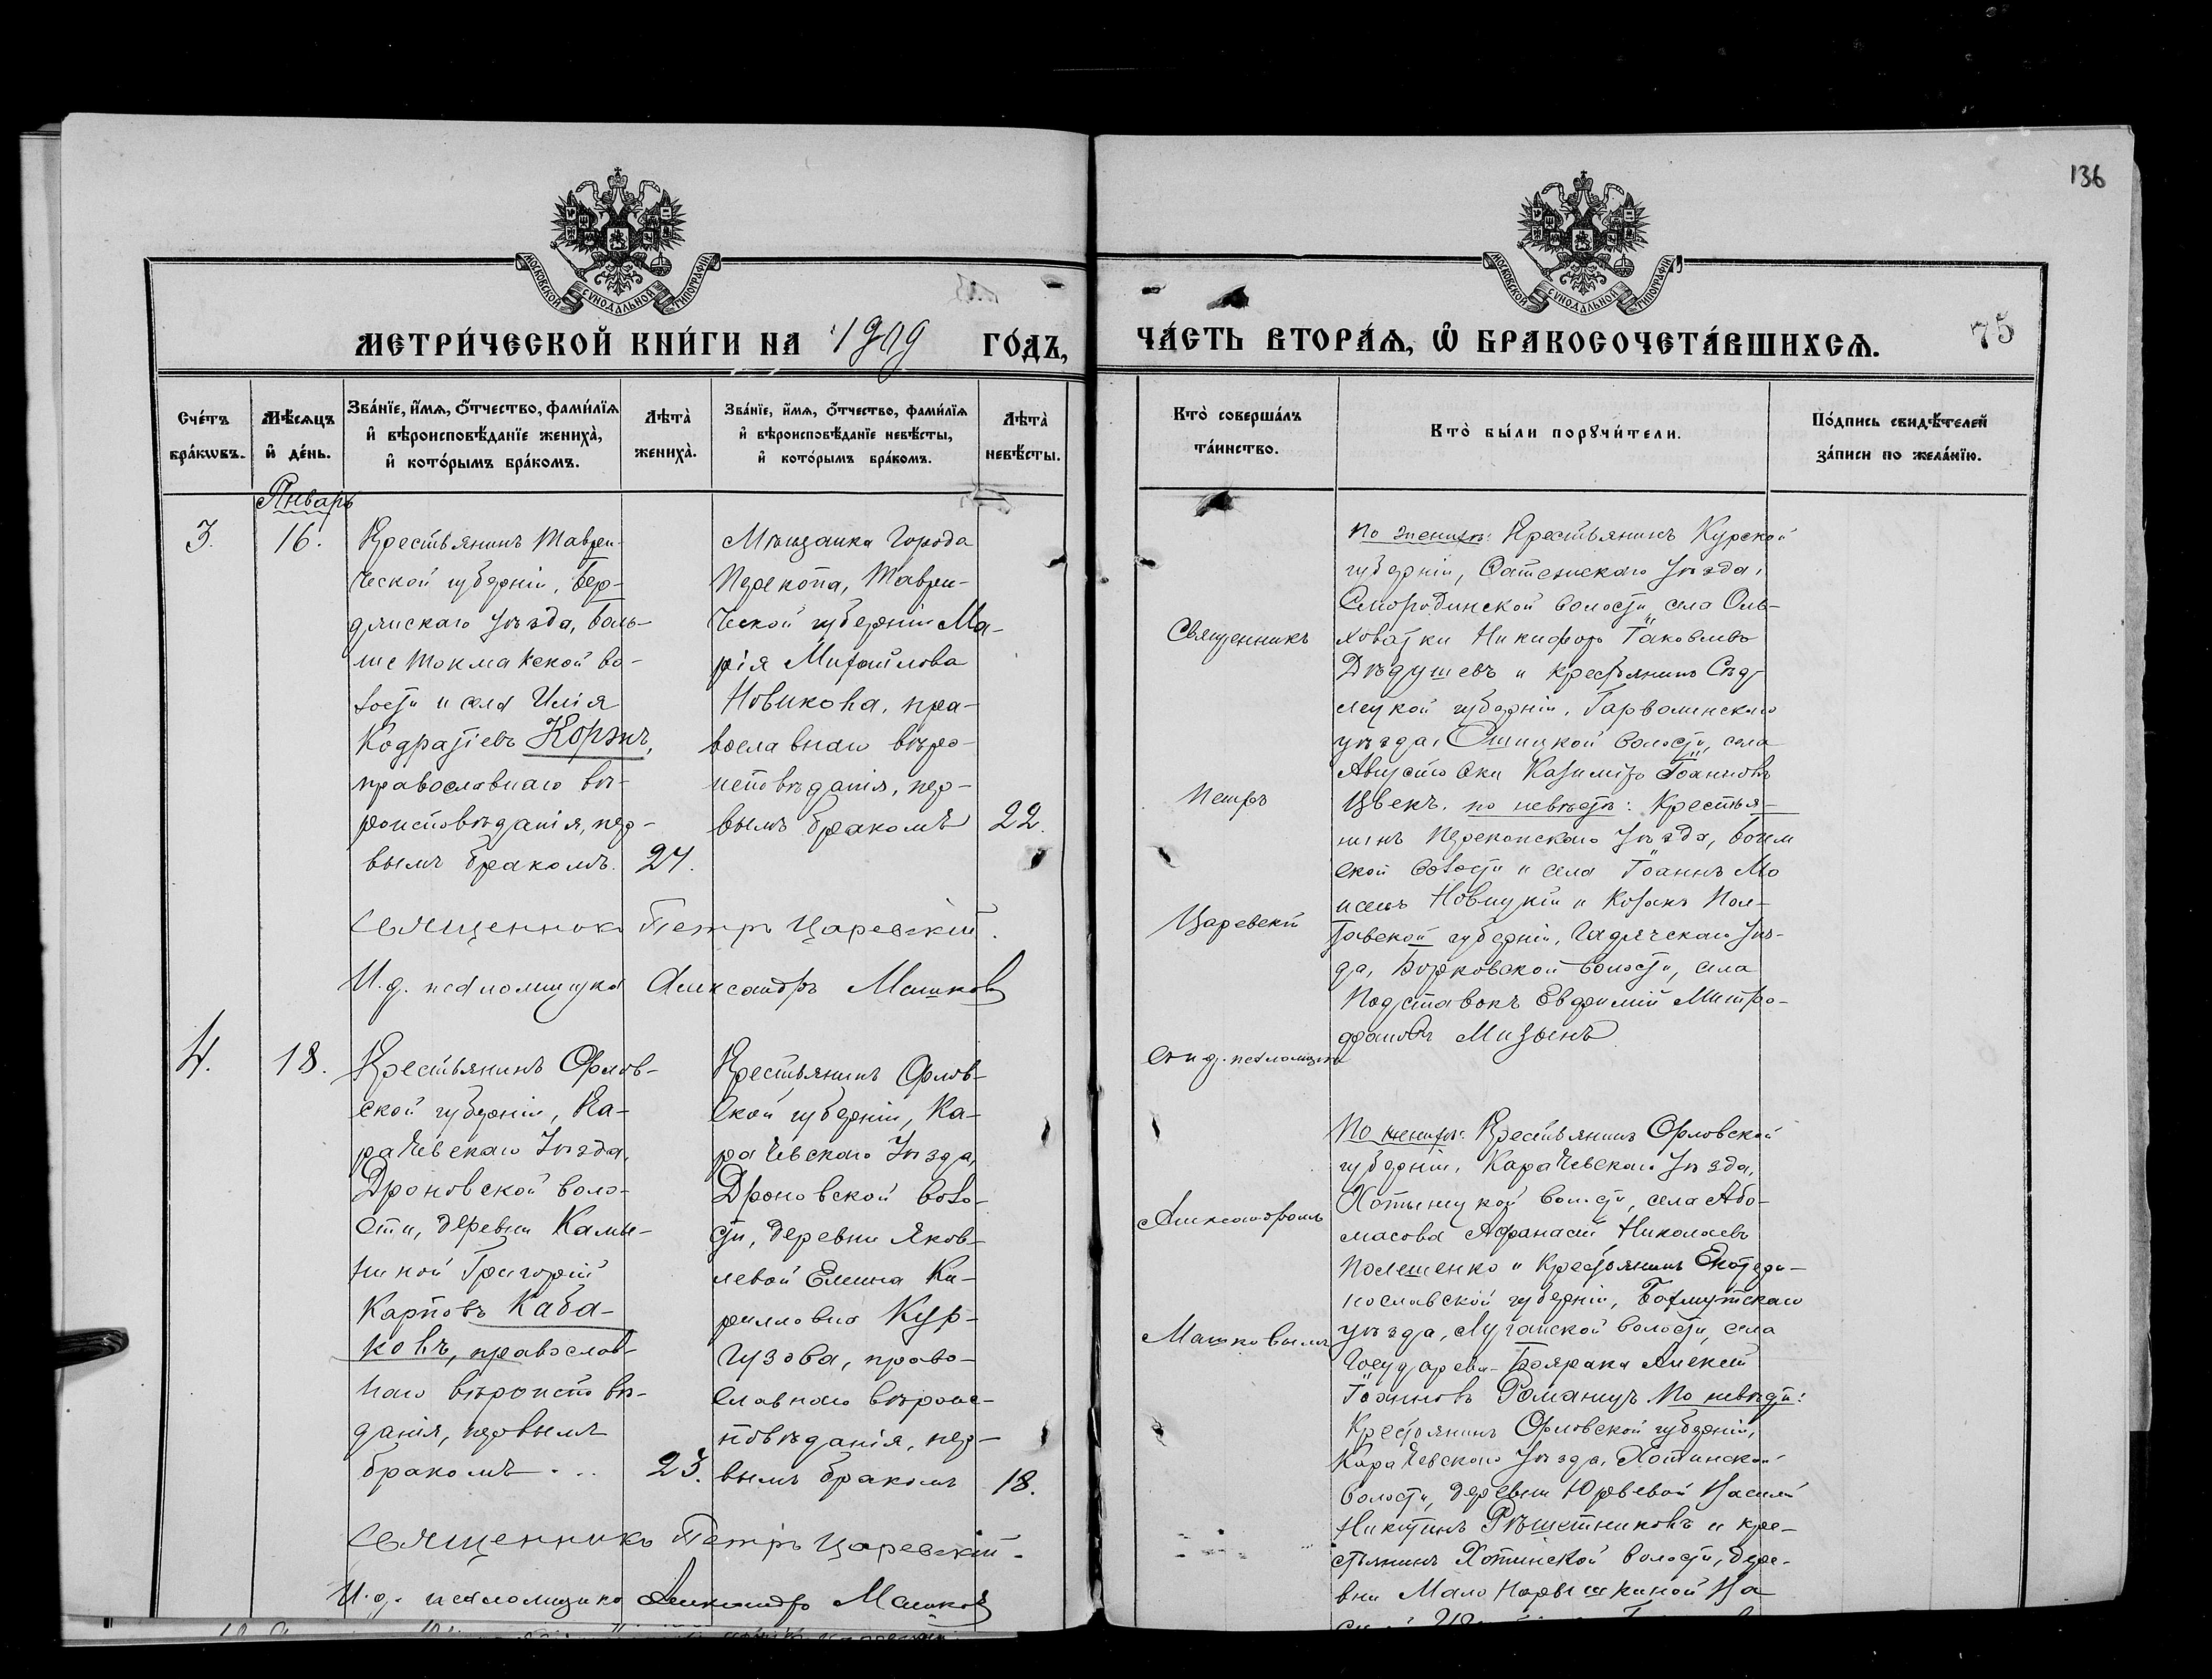 136
МОСКОВСКОЙ СѴНОДАЛЬНОЙ ТИПОГРАФІИ
МОСКОВСКОЙ СѴНОДАЛЬНОЙ ТИПОГРАФІИ
МЕТРИ́ЧЕСКОЙ КНИ́ГИ НА 1909 ГО́ДЪ,
ЧА́СТЬ ВТОРА́Ѧ, Ѡ҆ БРАКОСОЧЕТА́ВШИХСѦ.
75
Сче́тъ
бра́кѡвъ.
Мѣ́сѧцъ
и҆ де́нь.
Зва́нїе, и҆́мѧ, ѻ҆́тчество, фами́лїѧ
и҆ вѣроисповѣ́данїе жениха̀,
и҆ кото́рымъ бра́комъ.
Лѣ́та̀
жениха̀.
Зва́нїе, и҆́мѧ, ѻ҆́тчество, фами́лїѧ
и҆ вѣроисповѣ́данїе невѣ́сты,
и҆ кото́рымъ бра́комъ.
Лѣ́та̀
невѣ́сты.
Кто̀ соверша́лъ
та́инство.
Кто̀ бы́ли порꙋчи́тели.
По́дпись свидѣ́телей
за́писи по жела́нїю.
Январь
3.
16.
Крестьянинъ Таври-
ческой губерніи, Бер-
дянскаго уѣзда, Боль-
ше Токмакской во-
лости и села Илія
Кодратіевъ Коржъ,
православнаго вѣ-
роисповѣданія, пер-
вымъ бракомъ.
24.
Мѣщанка города
Перекопа, Таври-
ческой губерніи Ма-
рія Михайлова
Новикова, пра-
вославнаго вѣро-
исповѣданія, пер-
вымъ бракомъ
22.
Священникъ Петръ Царевскій.
И. д. псаломщика Александръ Машковъ
4.
18.
Крестьянинъ Орлов-
ской губерніи, Ка-
рачевскаго уѣзда,
Дроновской воло-
сти, деревни Камы-
ниной Григорій
Карповъ Каба-
ковъ, православ-
наго вѣроисповѣ-
данія, первымъ
бракомъ...
23.
Крестьянинъ Орлов-
ской губерніи, Ка-
рачевскаго уѣзда,
Дроновской воло-
сти, деревни Яков-
левой Елена Ки-
риллова Кур-
гузова, право-
славнаго вѣроис-
повѣданія, пер-
вымъ бракомъ
18.
Священникъ Петръ Царевскій.
И. д. псаломщика Александръ Машковъ
Священникъ
Петръ
Царевскій
съ и. д. псаломщика
Александромъ
Машковымъ
По женихѣ: Крестьянинъ Курской
губерніи, уѣзда,
Смородинской волости, села Оль-
ховатки Никифоръ Іаковлевъ
Дѣдушевъ и крестьянинъ Сѣд-
лецкой губерніи, Гарволинскаго
уѣзда, волости, села
Казиміръ Іоанновъ
Цвекъ. по невѣстѣ: Крестья-
нинъ Перекопскаго уѣзда, Воин
ской волости и села Іоаннъ Мо
исеевъ Новицкій и Козакъ Пол-
тавской губерніи, Гадячскаго уѣз-
да, Борковской волости, села
Подставокъ Евфимій Митро-
фановъ
По женихѣ: Крестьянинъ Орловской
губерніи, Карачевскаго уѣзда,
Хотынецкой волости, села Або-
масова Афанасій Николаевъ
Полешенко и Крестьянинъ Екатери-
нославской губерніи, Бахмутскаго
уѣзда, Луганской волости, села
Государева-Боярака Алексій
Іоанновъ Романцъ По невѣстѣ:
Крестьянинъ Орловской губерніи,
Карачевскаго уѣзда, Хотинской
волости, деревни Юрьевой Василій
Никитинъ Рѣшетниковъ и кре-
стьянинъ Хотинской волости, дере-
вни Мало Нарышкиной Ва